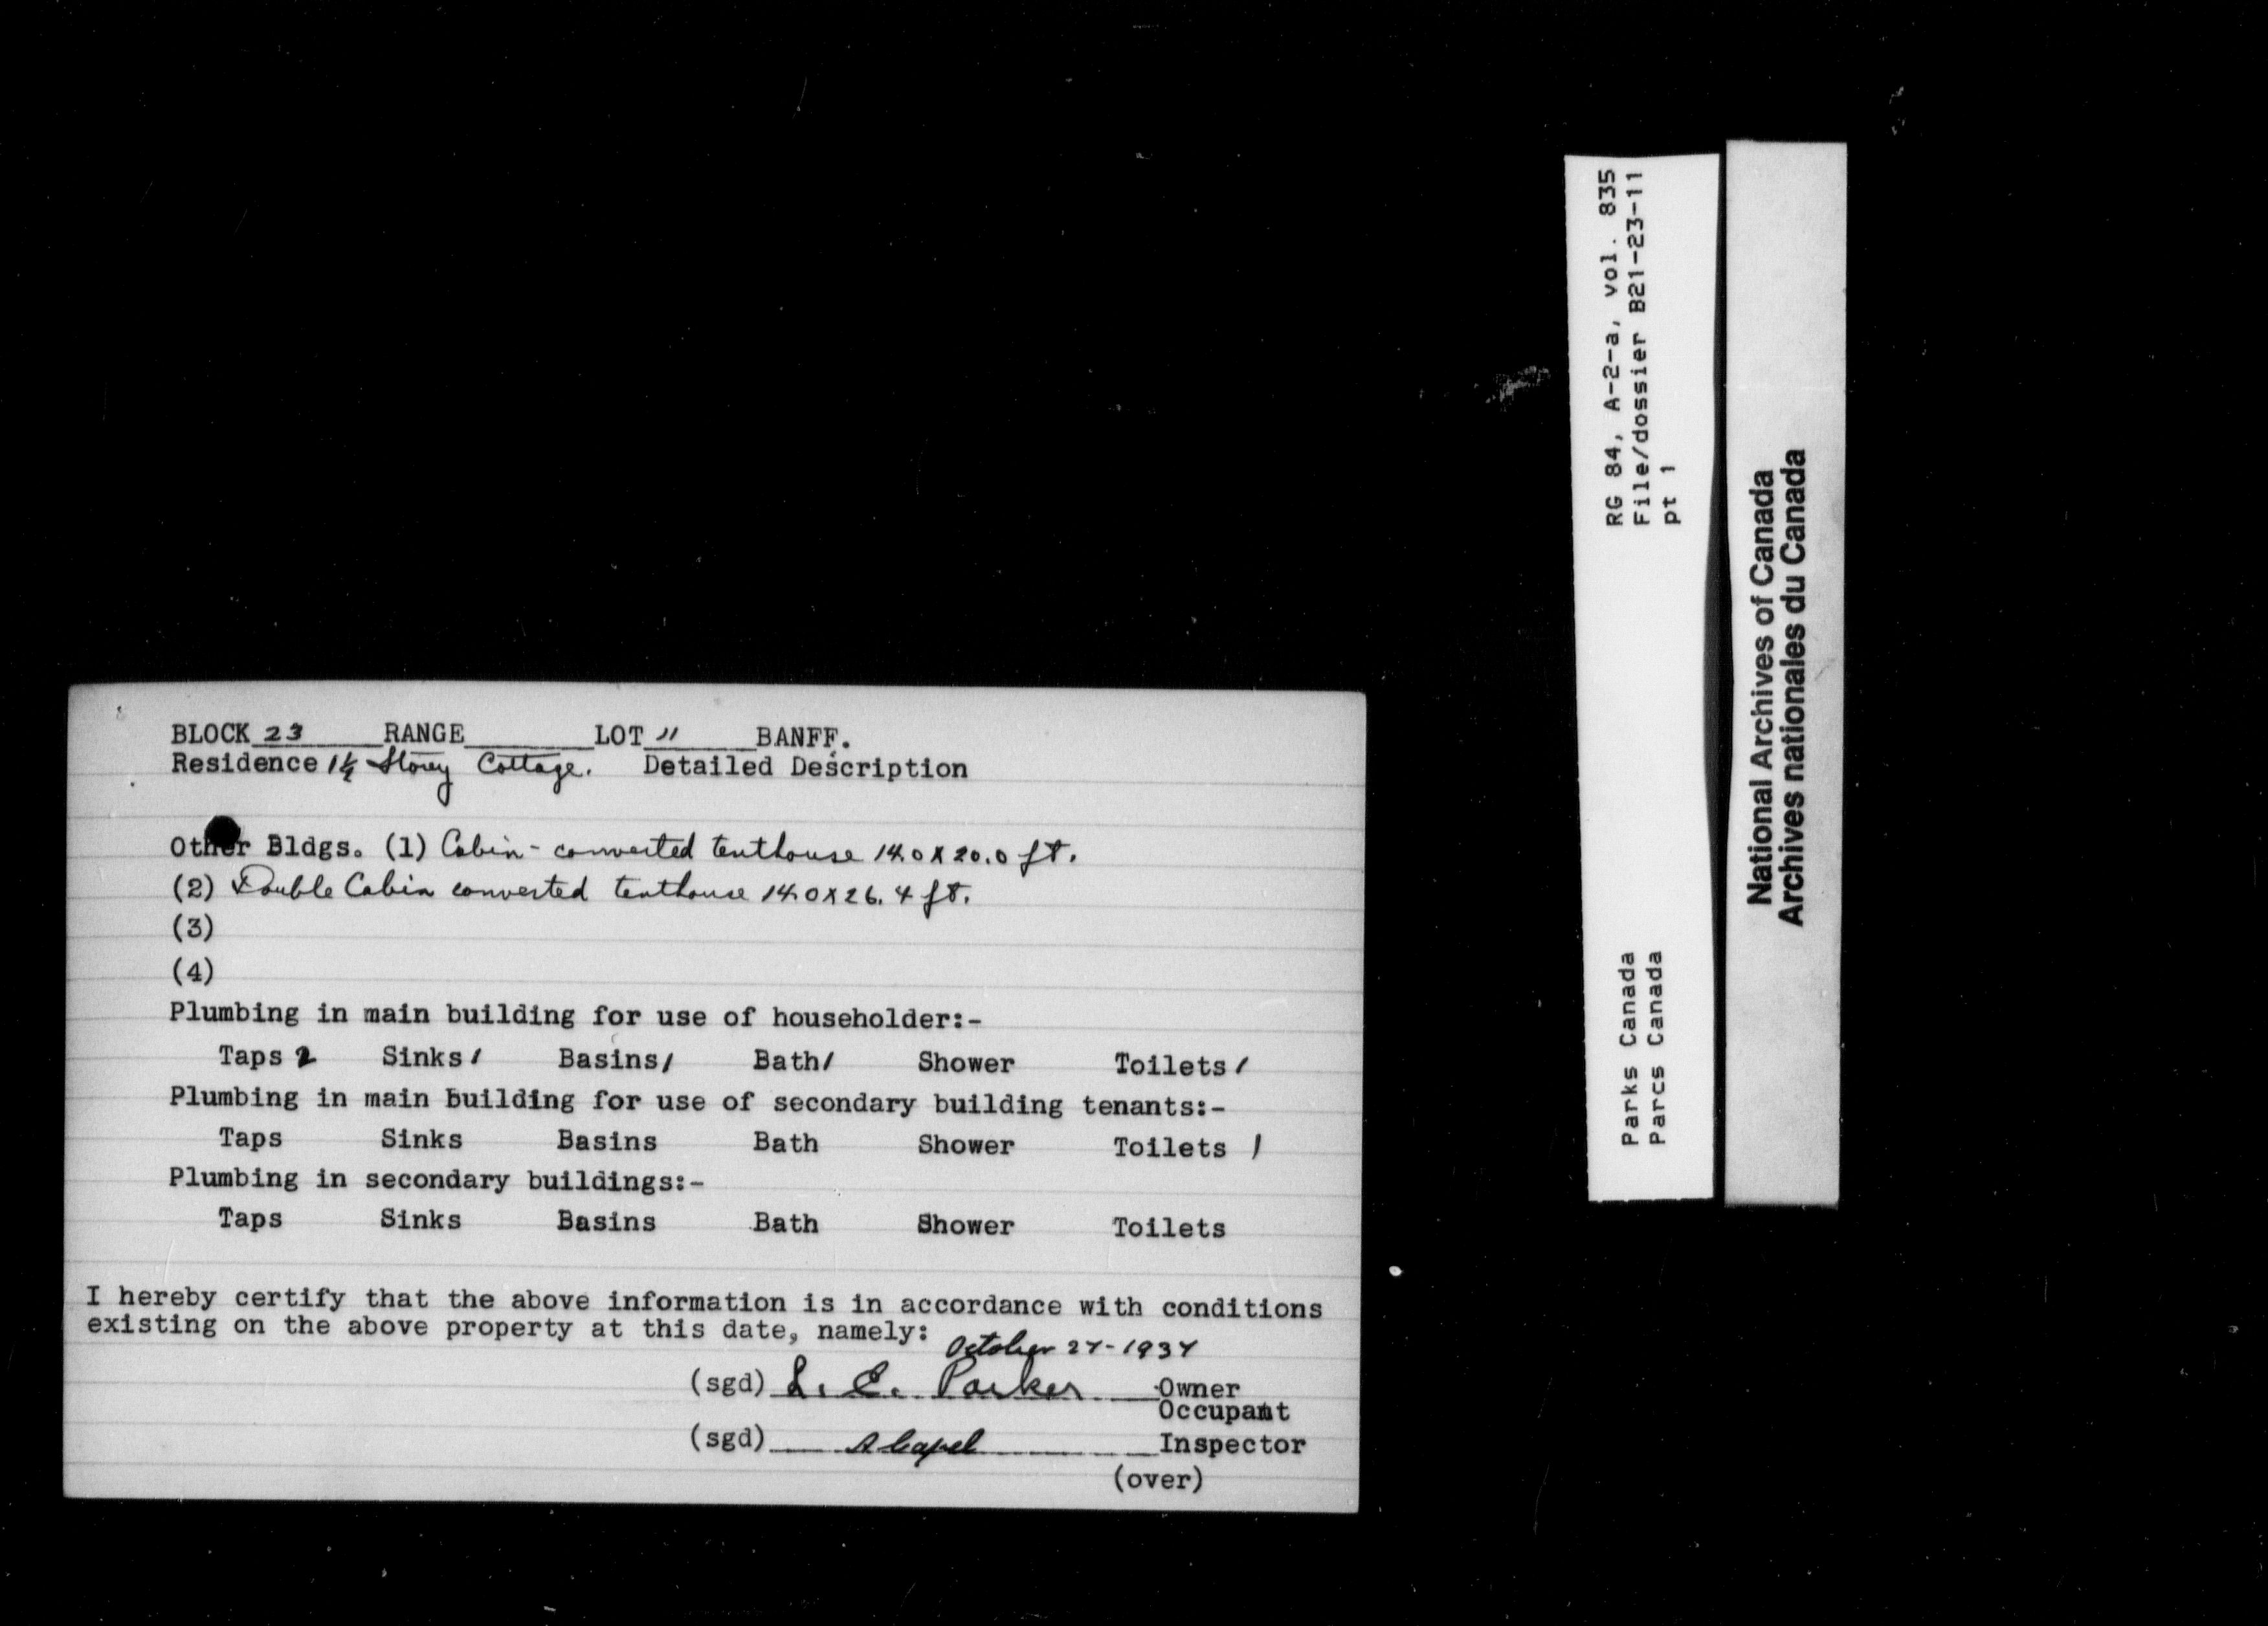 BLOCK 23 RANGE LOT 11 BANFF.
Residence Storey Cottage. Detailed Description
Other Bldgs. (1) Cabin - converted tenthouse 14.0 X 20.0 ft.
(2) Double Cabin converted tenthouse 14.0 X 26.4 ft.
(3)
(4)
Plumbing in main building for use of householder:-
Taps 2 Sinks 1 Basins 1 Bath 1 Shower Toilets 1
Plumbing in main building for use of secondary building tenants:-
Taps Sinks Basins Bath Shower Toilets 1
Plumbing in secondary buildings:-
Taps Sinks Basins Bath Shower Toilets
I hereby certify that the above information is in accordance with conditions
existing on the above property at this date, namely:
October
(sgd) L. E. Parker Owner
Occupant
(sgd) Inspector
(over)
RG 84, A-2-a, vol. 835
File/dossier B21-23-11
pt 1
Parks Canada
Parcs Canada
National Archives of Canada
Archives nationales du Canada